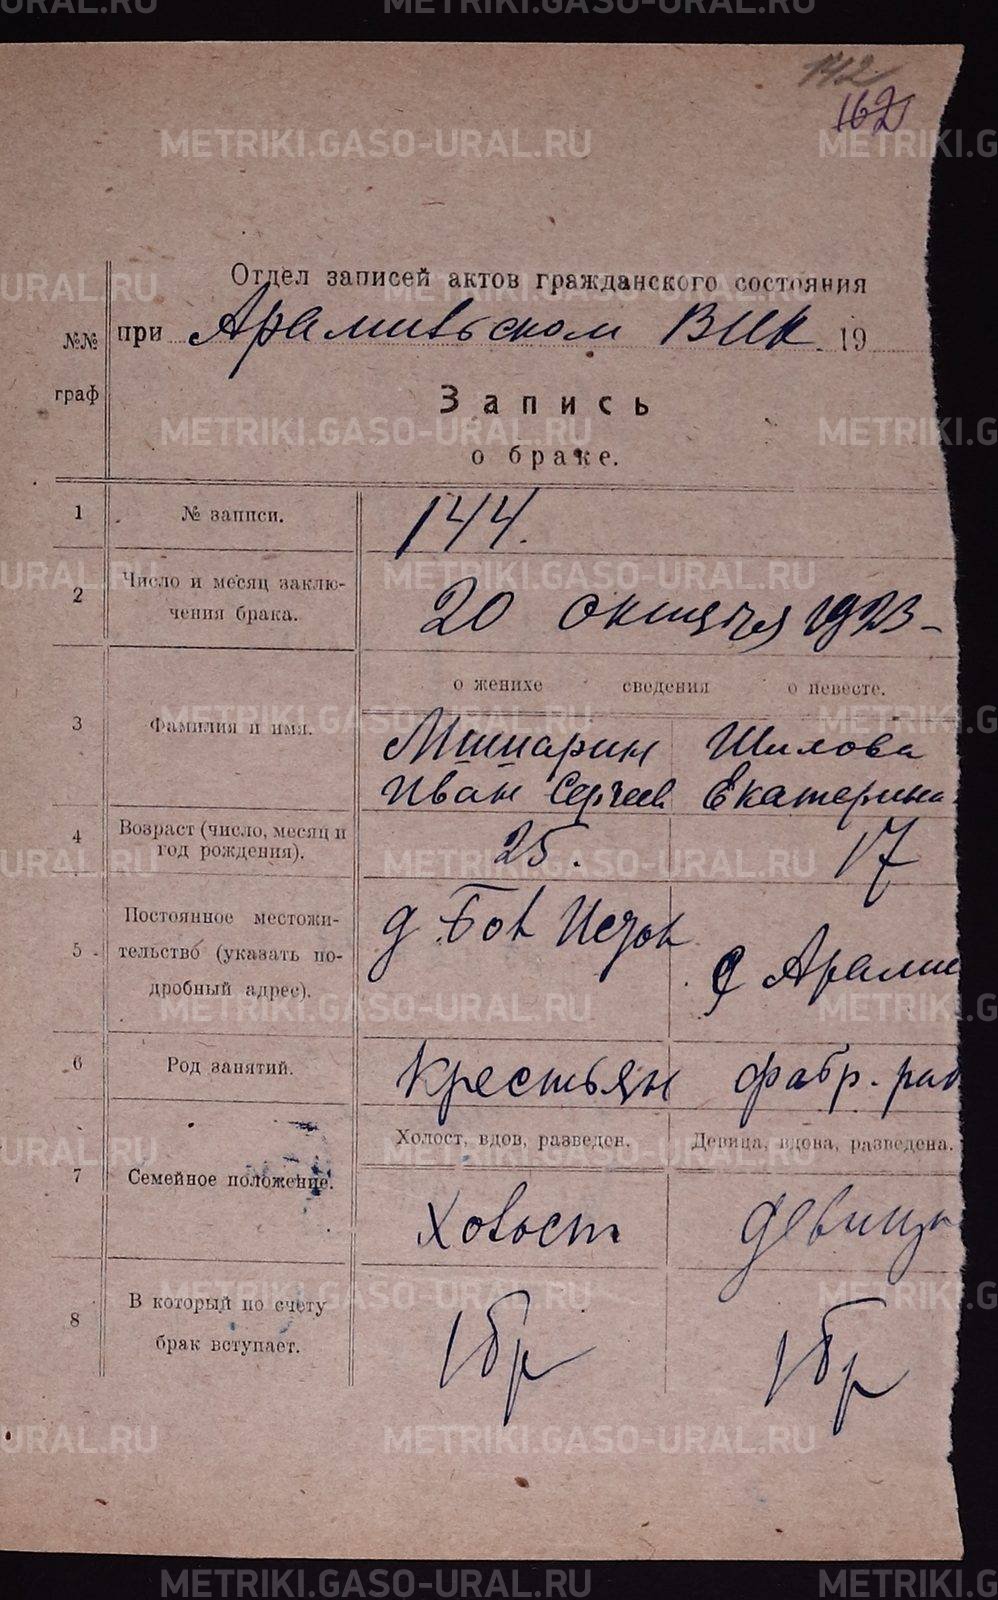 142
162
Отдел записей актов гражданского состояния
при Арамильском ВИК 19
№№ граф
Запись
о браке.
1 № записи. 144.
2 Число и месяц заключения брака. 20 октября 1923 –
о женихе сведения о невесте.
3 Фамилия и имя.
Мишарин Шилова
Иван Сергеев Екатерина
4 Возраст (число, месяц и год рождения). 25. 17
5 Постоянное местожительство (указать подробный адрес).
д. Бол Исток
с Арамил
6 Род занятий. Крестьян фабр. раб
Холост, вдов, разведен. Девица, вдова, разведена.
7 Семейное положение. Холост девица
8 В который по счету брак вступает. 1 бр 1 бр
METRIKI.GASO-URAL.RU